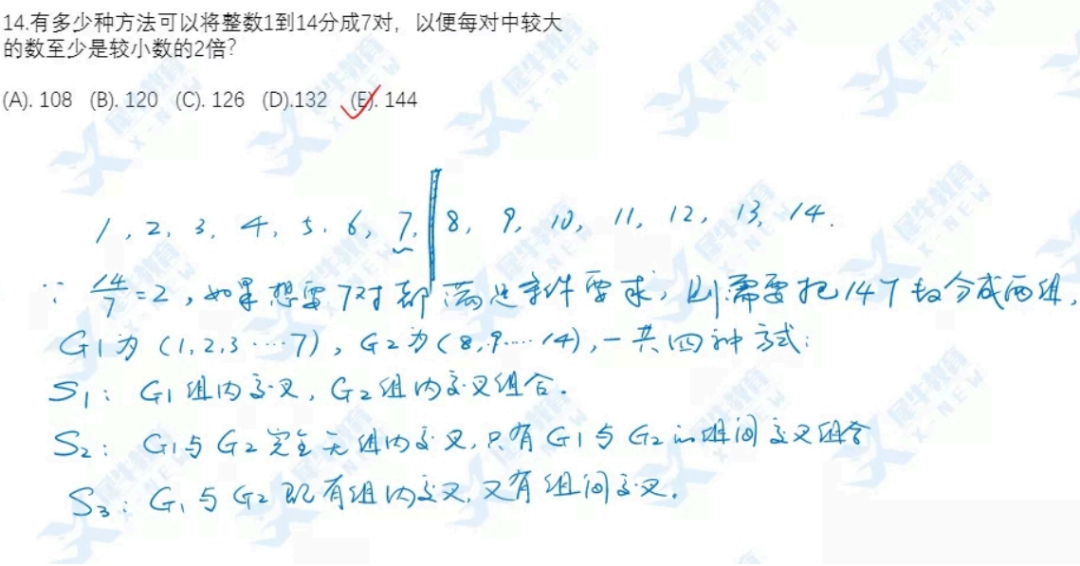 14.有多少种方法可以将整数1到14分成7对，以便每对中较大
的数至少是较小数的2倍?
(A). 108 (B). 120 (C). 126 (D).132 (E). 144
1, 2, 3, 4, 5, 6, 7, 8, 9, 10, 11, 12, 13, 14.
∵ 14/7=2, 如果想要7对都满足条件要求, 则需要把14个数分成两组,
G1为(1,2,3····7), G2为(8,9····14), 一共四种方式:
S1: G1组内交叉, G2组内交叉组合.
S2: G1与G2完全无组内交叉, 只有G1与G2的组间交叉组合
S3: G1与G2既有组内交叉, 又有组间交叉.
犀牛教育
X-NEW